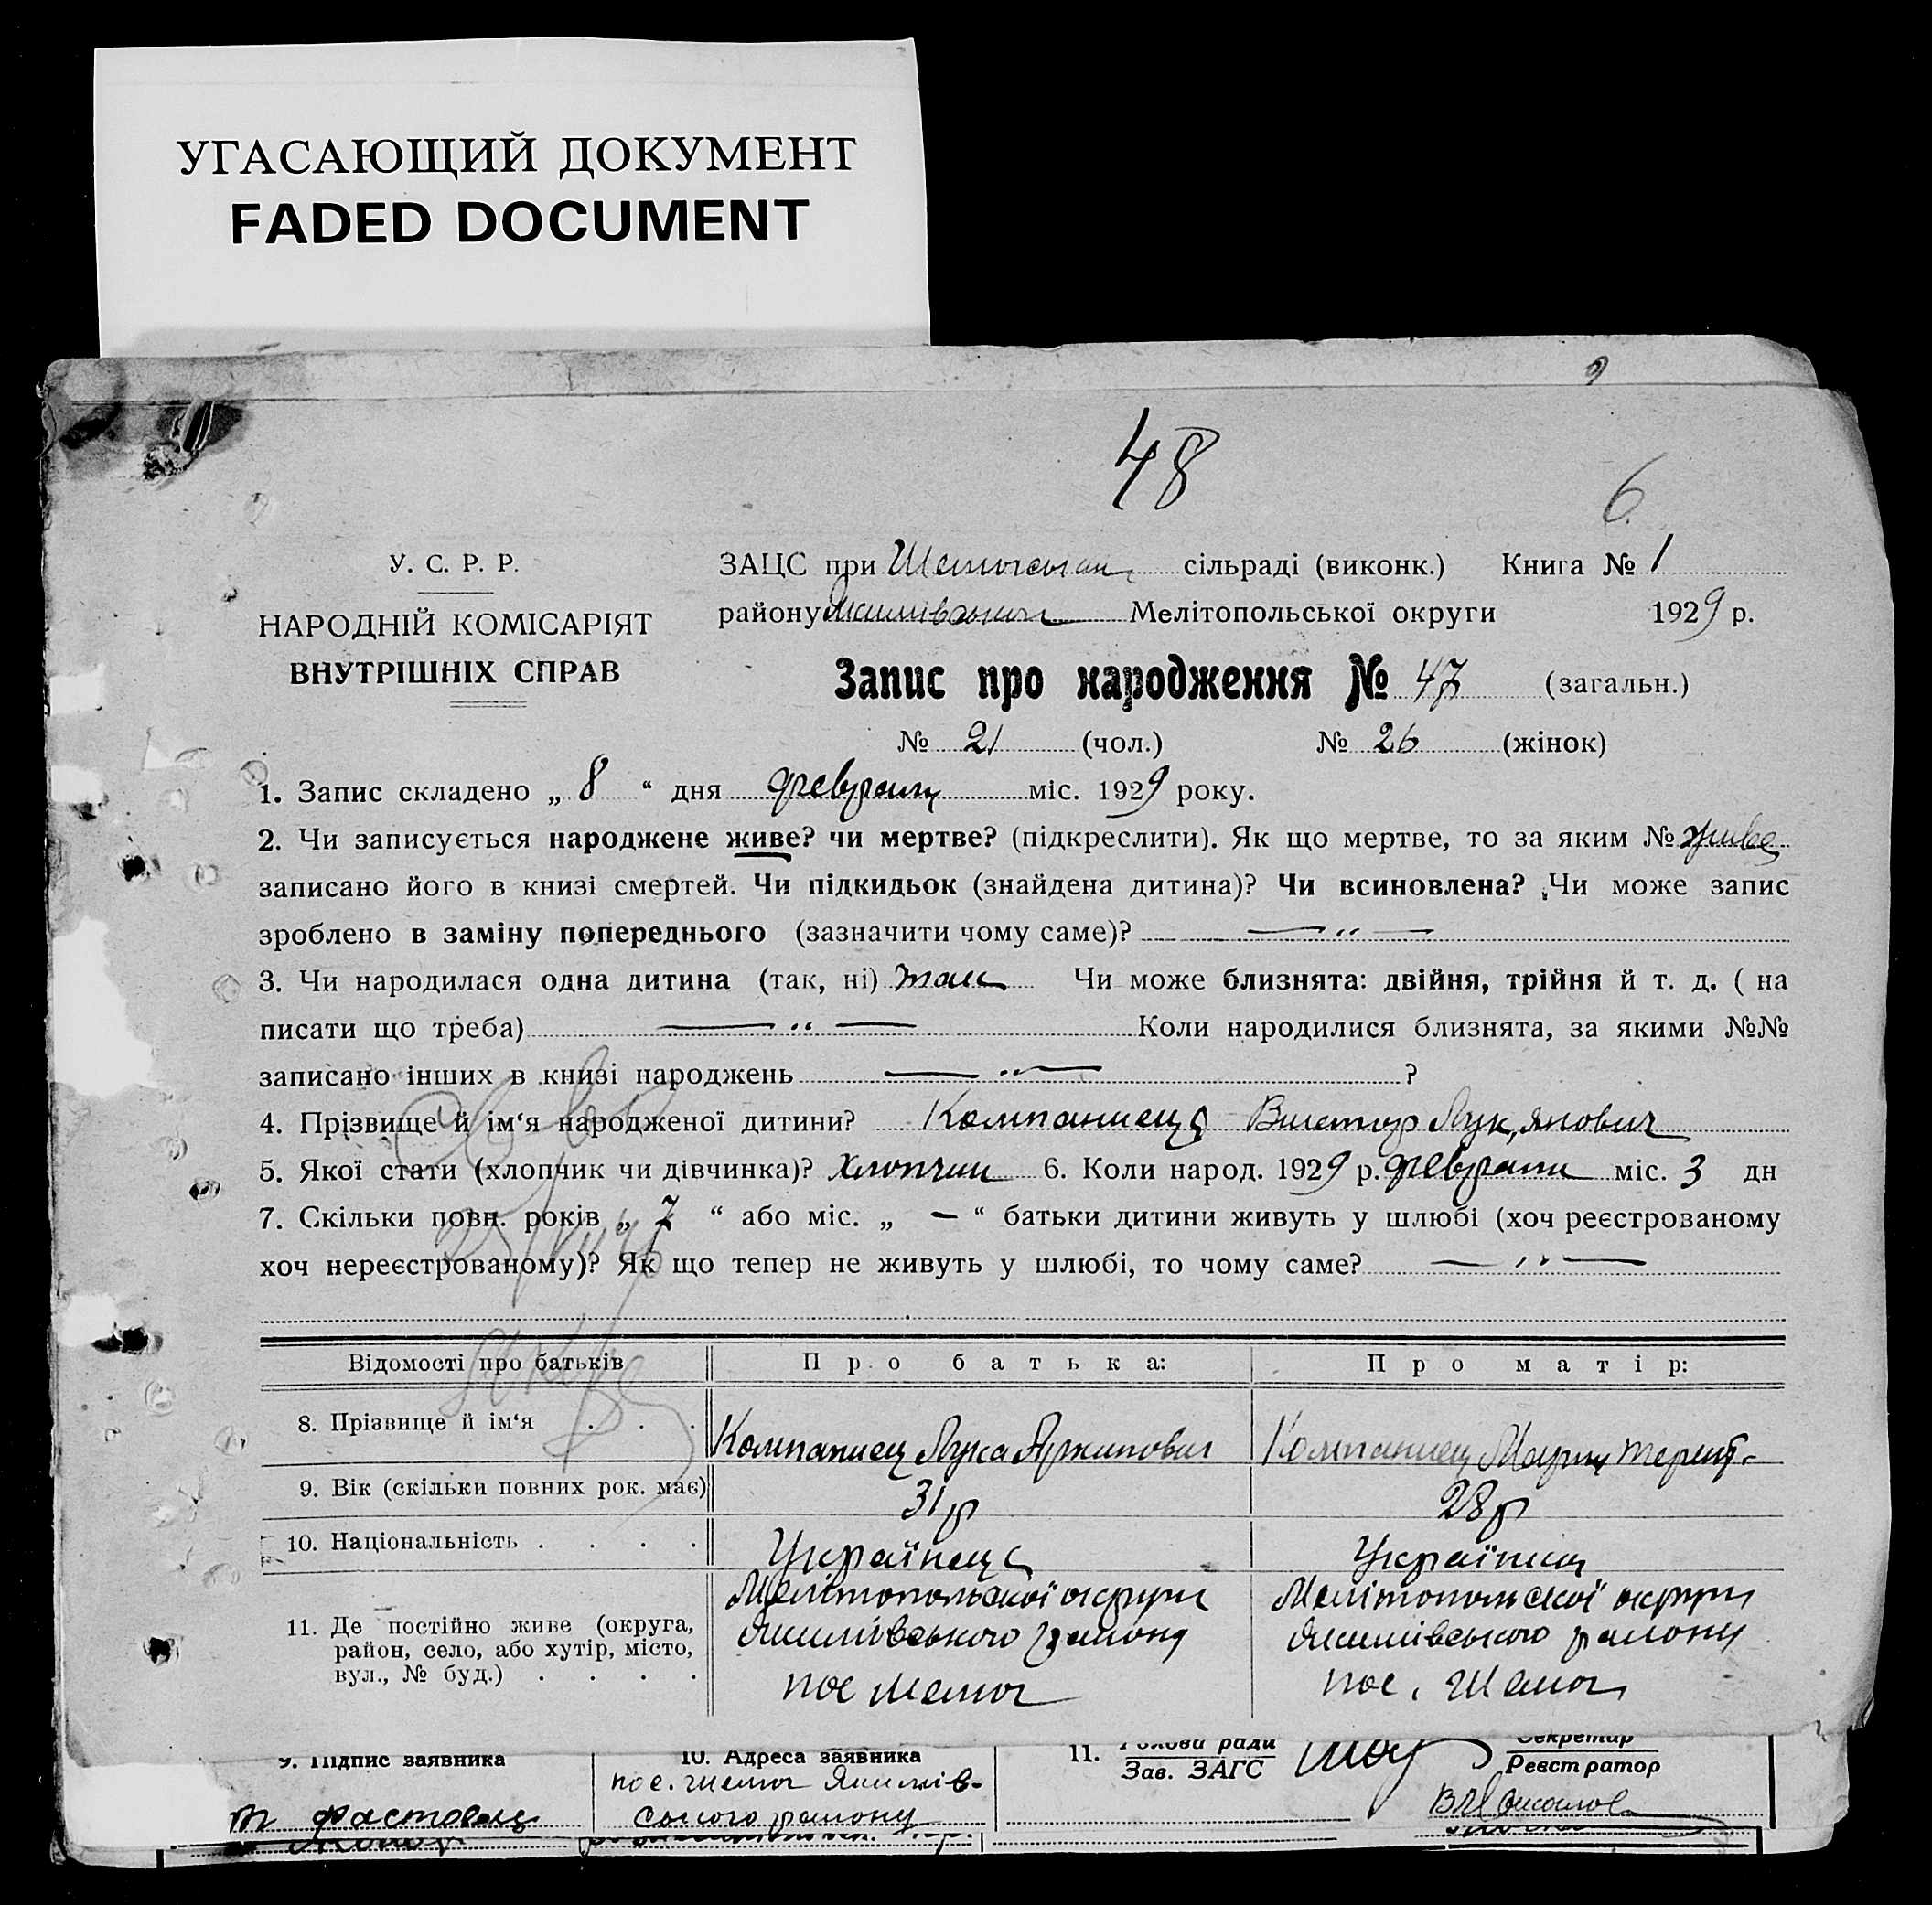 УГАСАЮЩИЙ ДОКУМЕНТ
FADED DOCUMENT
9
48
6
У. С. Р. Р.
НАРОДНІЙ КОМІСАРІЯТ
ВНУТРІШНІХ СПРАВ
ЗАЦС при сільраді (виконк.) Книга № 1
району Якимівського Мелітопольської округи 1929 р.
Запис про народження № 47 (загальн.)
№ 21 (чол.) № 26 (жінок)
1. Запис складено „ 8 “ дня февраля міс. 1929 року.
2. Чи записується народжене живе? чи мертве? (підкреслити). Як що мертве, то за яким № живе
записано його в книзі смертей. Чи підкидьок (знайдена дитина)? Чи всиновлена? Чи може запис
зроблено в заміну попереднього (зазначити чому саме)? — „ —
3. Чи народилася одна дитина (так, ні) так Чи може близнята: двійня, трійня й т. д. ( на
писати що треба) — „ — Коли народилися близнята, за якими №№
записано інших в книзі народжень — „ — ?
4. Прізвище й ім‘я народженої дитини? Компаниець Виктор Лук,янович
5. Якої стати (хлопчик чи дівчинка)? хлопчик 6. Коли народ. 1929 р. февраля міс. 3 дн
7. Скільки повн. років „ 7 “ або міс. „ — “ батьки дитини живуть у шлюбі (хоч реєстрованому
хоч нереєстрованому)? Як що тепер не живуть у шлюбі, то чому саме? — „ —
Відомості про батьків Про батька: Про матір:
8. Прізвище й ім‘я . . . Компаниец Лука Архипович Компаниец Мария Терент.
9. Вік (скільки повних рок. має) 31 р 28 р
10. Національність . . . . Українець Українка
11. Де постійно живе (округа, район, село, або хутір, місто, вул., № буд.) . . . .
Мелітопольської округи Мелітопольської округи
Якимівського району Якимівського району
пос пос.
9. Підпис заявника 10. Адреса заявника 11. Голова ради Секретар
Зав. ЗАГС Реєстратор
пос. Якимів-
Фастовец ського району